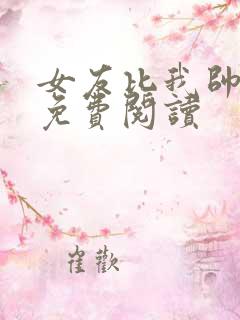 女友比我帥
免費閱讀
崔歡